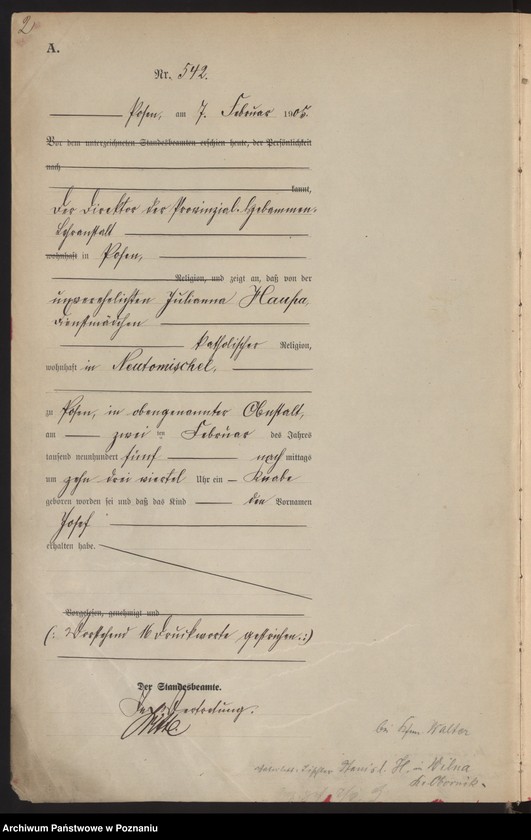 2
A.
Nr. 542.
Posen, am 7. Februar 1905.
Vor dem unterzeichneten Standesbeamten erschien heute, der Persönlichkeit
nach
kannt,
Der Direktor der Provinzial-Hebammen-
Lehranstalt
wohnhaft in Posen,
Religion, und zeigt an, daß von der
unverehelichten Julianna Haupa,
Dienstmädchen
katholischer Religion,
wohnhaft in Neutomischel,
zu Posen, in obengenannter Anstalt,
am zwei ten Februar des Jahres
tausend neunhundert fünf nach mittags
um zehn drei viertel Uhr ein Knabe
geboren worden sei und daß das Kind den Vornamen
Josef
erhalten habe.
Vorgelesen, genehmigt und
(: Vorstehend 16 Druckworte gestrichen. :)
Der Standesbeamte.
In Vertretung.
bei Walter
Stanisl. H. in Wilna
Kr. Obornik.
Archiwum Państwowe w Poznaniu